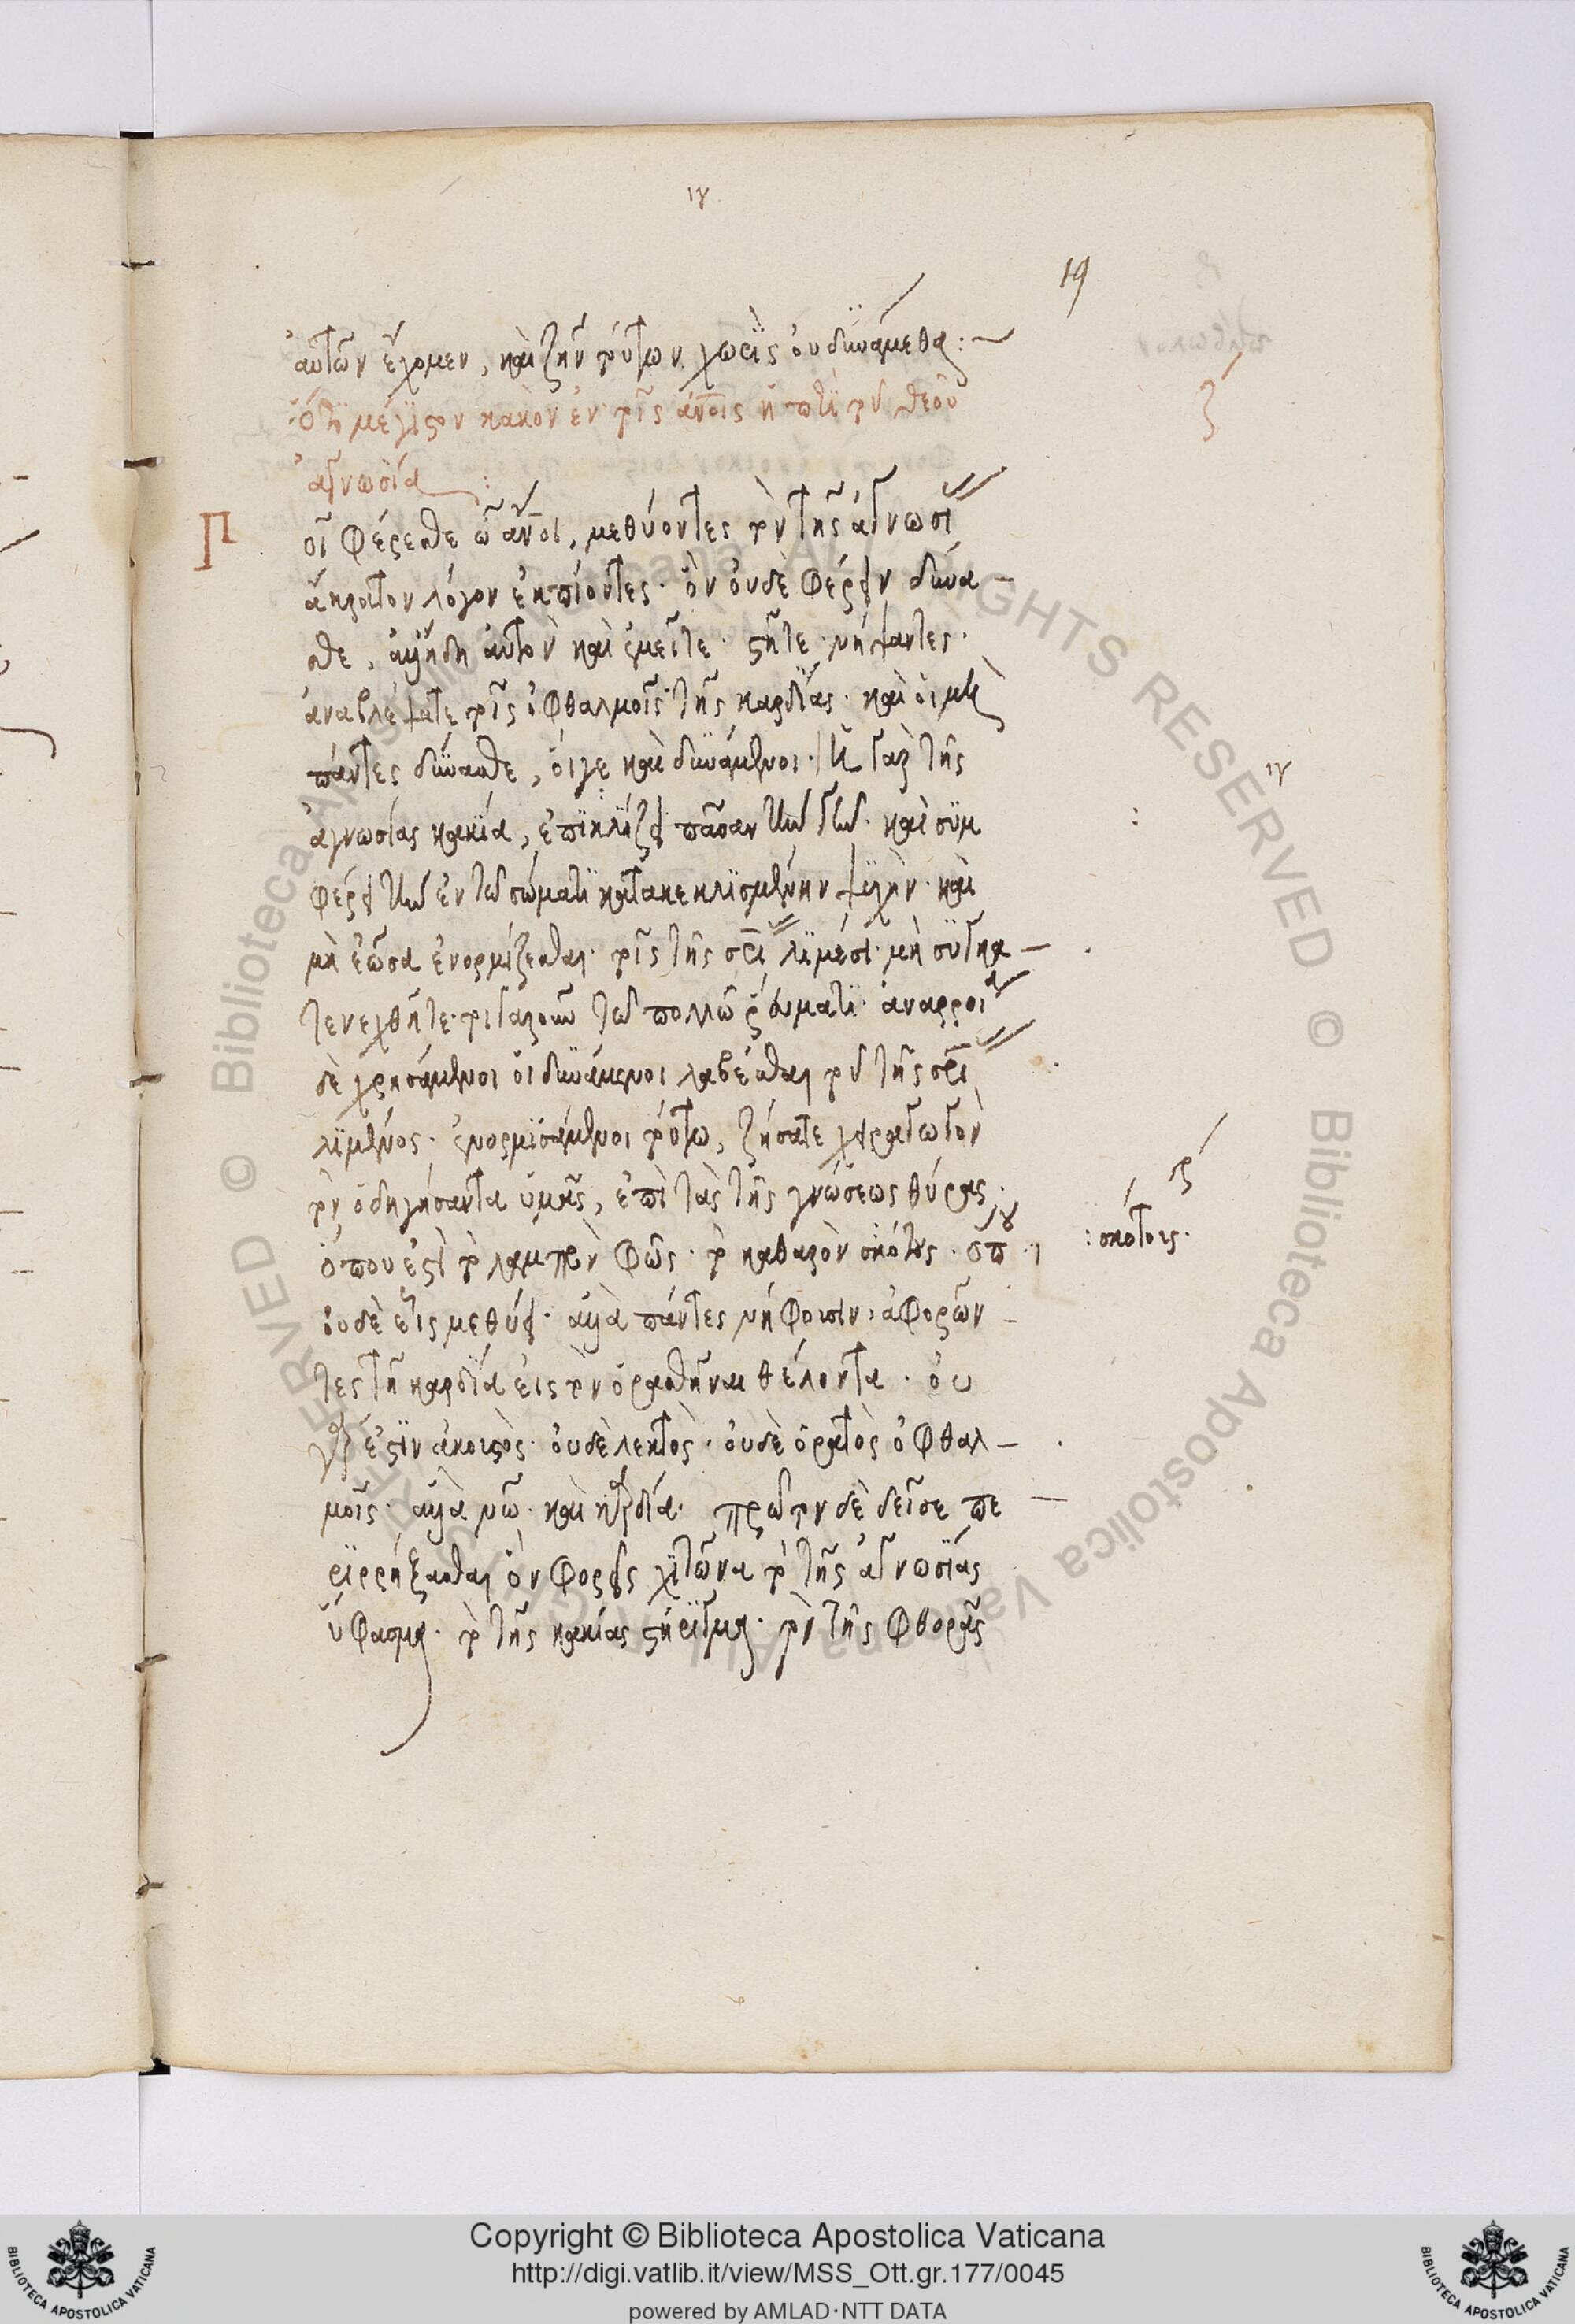 ιγ
19
αὐτῶν ἔχομεν, καὶ ζῆν τούτων χωρὶς οὐ δυνάμεθα:~
Ὅτι μέγιστον κακὸν ἐν τοῖς ἀνοις ἡ περὶ τοῦ θεοῦ
ζ
ἀγνωσία:
Ποῖ φέρεσθε ὦ ἄνοι, μεθύοντες τὸν τῆς ἀγνωσί
ἄκρατον λόγον ἐκπιόντες· ὃν οὐδὲ φέρειν δύνα-
σθε, ἀλλ' ἤδη αὐτὸν καὶ ἐμεῖτε· στῆτε νήψαντες·
ἀναβλέψατε τοῖς ὀφθαλμοῖς τῆς καρδίας· καὶ οἱ μὴ
πάντες δύνασθε, οἵγε καὶ δυνάμενοι· ἡ γὰρ τῆς
ιγ
ἀγνωσίας κακία, ἐπικλύζει πᾶσαν τὴν γῆν· καὶ συμ
φέρει τὴν ἐν τῷ σώματι κατακεκλισμένην ψυχὴν· καὶ
μὴ ἐῶσα ἐνορμίζεσθαι· τοῖς τῆς σρι λιμέσι· μὴ συγκα-
τενεχθῆτε· τοιγαροῦν τῷ πολλῷ ῥεύματι· ἀναρροί
δὲ χρησάμενοι οἱ δυνάμενοι λαβέσθαι τοῦ τῆς σρι
λιμένος· ἐνορμισάμενοι τούτῳ, ζήσατε χειραγωγὸν
τὸν ὁδηγήσαντα ὑμᾶς, ἐπὶ τὰς τῆς γνώσεως θύρας·
ὅπου ἐστὶ τὸ λαμπρὸν φῶς· τὸ καθαρὸν σκότους· ὅπου
:σκότοις·
οὐδὲ εἷς μεθύει· ἀλλὰ πάντες νήφουσιν, ἀφορῶν-
τες τῇ καρδίᾳ εἰς τὸν ὁραθῆναι θέλοντα· οὐ
γάρ ἐστιν ἀκουστὸς· οὐδὲ λεκτὸς· οὐδὲ ὁρατὸς ὀφθαλ-
μοῖς· ἀλλὰ νῷ· καὶ καρδίᾳ· πρῶτον δὲ δεῖ σε πε-
ριρρήξασθαι ὃν φορεῖς χιτῶνα τὸ τῆς ἀγνωσίας
ὕφασμα· τὸ τῆς κακίας στήριγμα· τὸν τῆς φθορᾶς
Copyright © Biblioteca Apostolica Vaticana
http://digi.vatlib.it/view/MSS_Ott.gr.177/0045
powered by AMLAD·NTT DATA